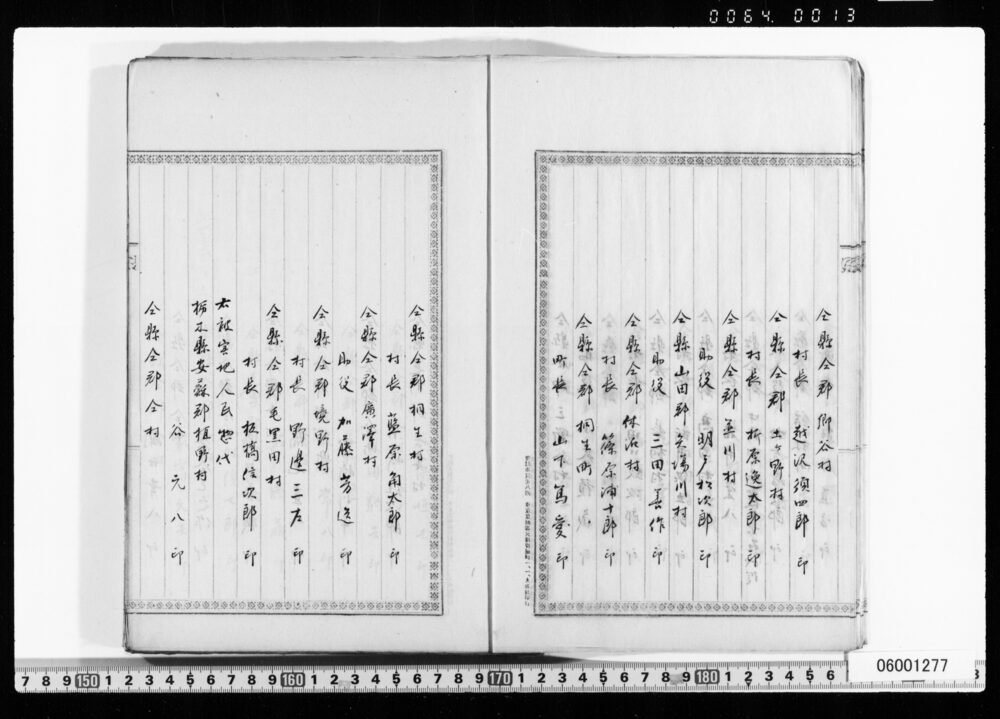 0064 0013
仝縣仝郡郷谷村
村長 越沢須四郎 印
仝縣仝郡 土々野村
村長 折原逸太郎 印
仝縣仝郡 菱川村
助役 明戸松次郎 印
仝縣山田郡矢場川村
助役 三田善作 印
仝縣仝郡休泊村
村長 篠原浦十郎 印
仝縣仝郡 桐生町
町長 山下篤愛 印
仝縣仝郡桐生村
村長 藍原角太郎 印
仝縣仝郡廣澤村
助役 加藤芳送 印
仝縣仝郡境野村
村長 野邊三左 印
仝縣仝郡毛里田村
村長 板橋信次郎 印
右被害地人民惣代
栃木縣安蘇郡植野村
谷 元八 印
仝縣仝郡仝村
7 8 9 150 1 2 3 4 5 6 7 8 9 160 1 2 3 4 5 6 7 8 9 170 1 2 3 4 5 6 7 8 9 180 1 2 3 4 5 6
06001277